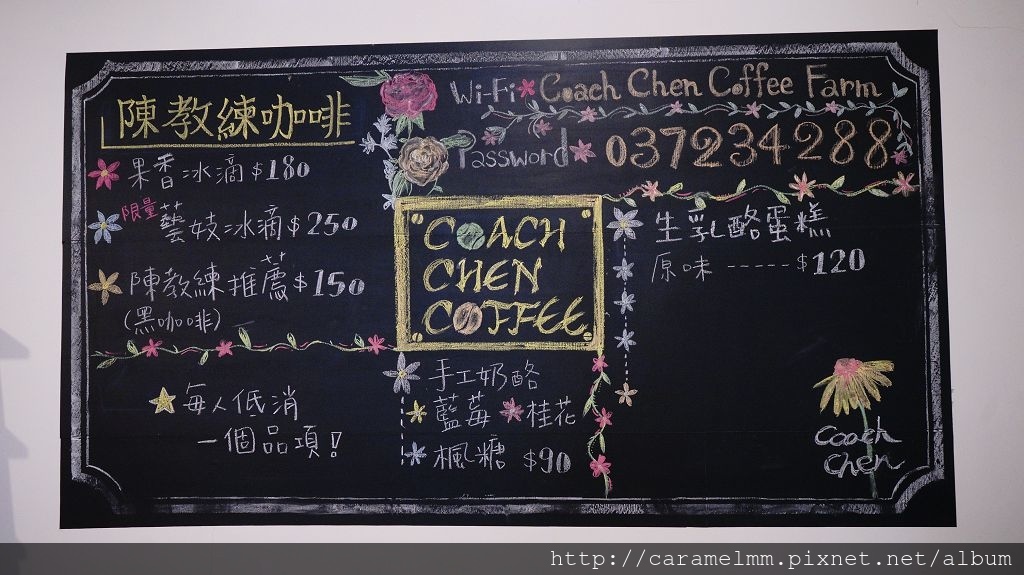 陳教練咖啡
果香冰滴 $180
限量 藝妓冰滴 $250
陳教練推薦 $150
(黑咖啡)
每人低消
一個品項!
Wi-Fi Coach Chen Coffee Farm
Password 037234288
COACH
CHEN
COFFEE
手工奶酪
藍莓 桂花
楓糖 $90
生乳酪蛋糕
原味 ----- $120
Coach
Chen
http://caramelmm.pixnet.net/album